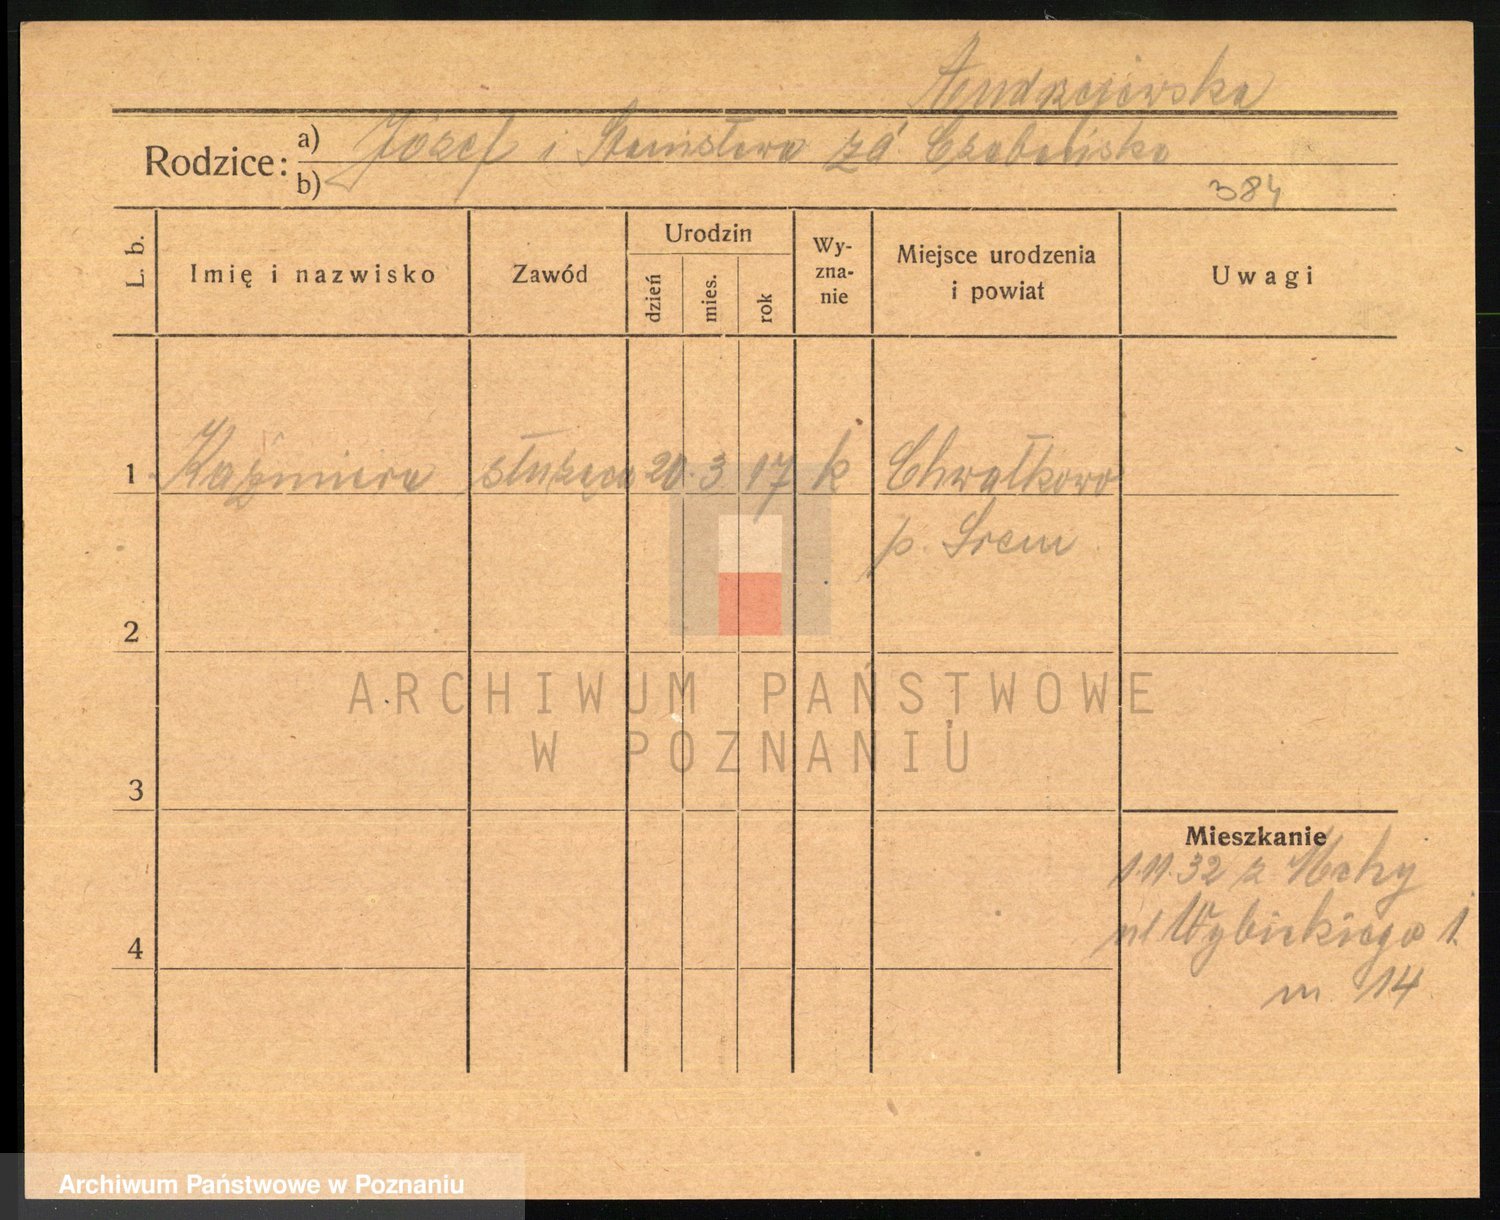 Andrzejewska
Rodzice: a) Józef i Stanisława zd. Czabańska
b)
384
L. b.
Imię i nazwisko
Zawód
Urodzin
dzień
mies.
rok
Wy-
zna-
nie
Miejsce urodzenia
i powiat
Uwagi
1 Kaźmiera służąca 20. 3 17 k Chwałkowo
p. Śrem
2
3
4
Mieszkanie
1.11.32 z Mchy
ul Wybickiego 1.
m. 14
ARCHIWUM PAŃSTWOWE
W POZNANIU
Archiwum Państwowe w Poznaniu